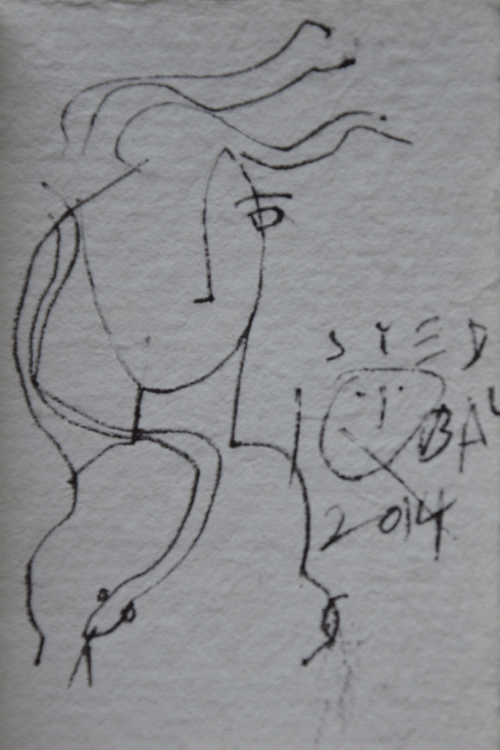 SYED
IQBAL
2014